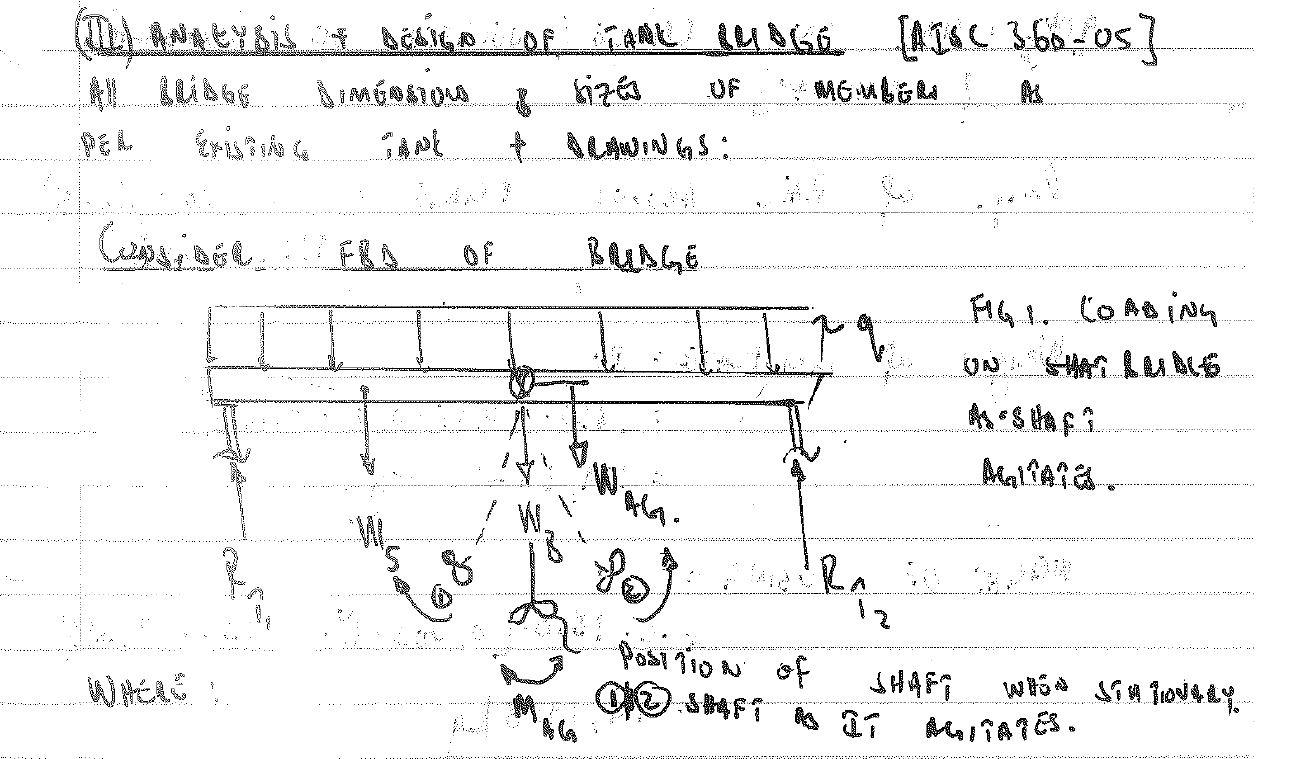 (III) ANALYSIS + DESIGN OF TANK BRIDGE [AISC 360-05]
All BRIDGE DIMENSIONS & SIZES OF MEMBERS AS
PER EXISTING TANK + DRAWINGS:
CONSIDER FBD OF BRIDGE
FIG 1. LOADING
ON SHAT BRIDGE
AS SHAFT
AGITATES.
q
W AG.
W S
W B
R T1
R T2
① ②
M AG
POSITION OF SHAFT WHEN STATIONARY.
① ② SHAFT AS IT AGITATES.
WHERE: